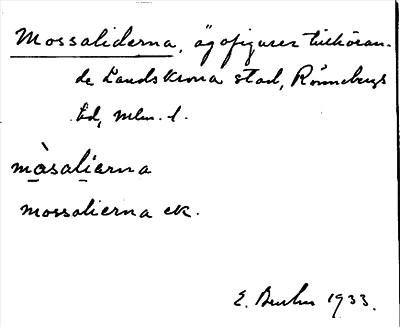 Mossaliderna, ägofigurer tillhöran-
de Landskrona stad, Rönnebergs
hd, Mlm. l.
màsalierna
mossalierna ek.
E. 1933.